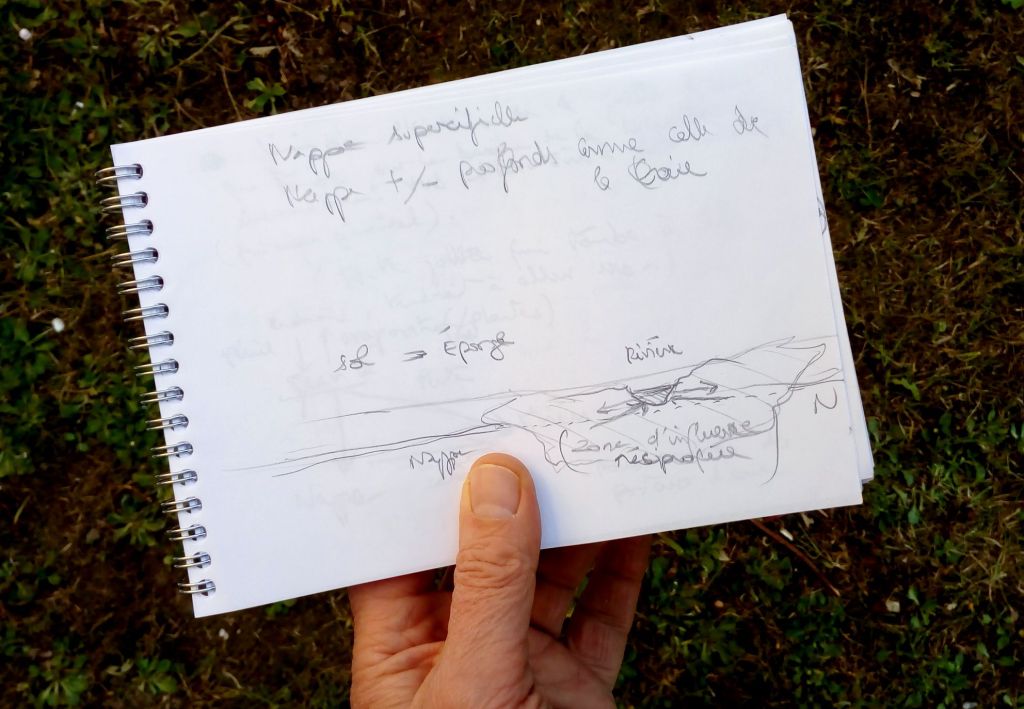 Nappe superficielle
Nappe +/- profonde comme celle de
la Craie
sol => Éponge
Rivière
N
Nappe
(zone d'influence